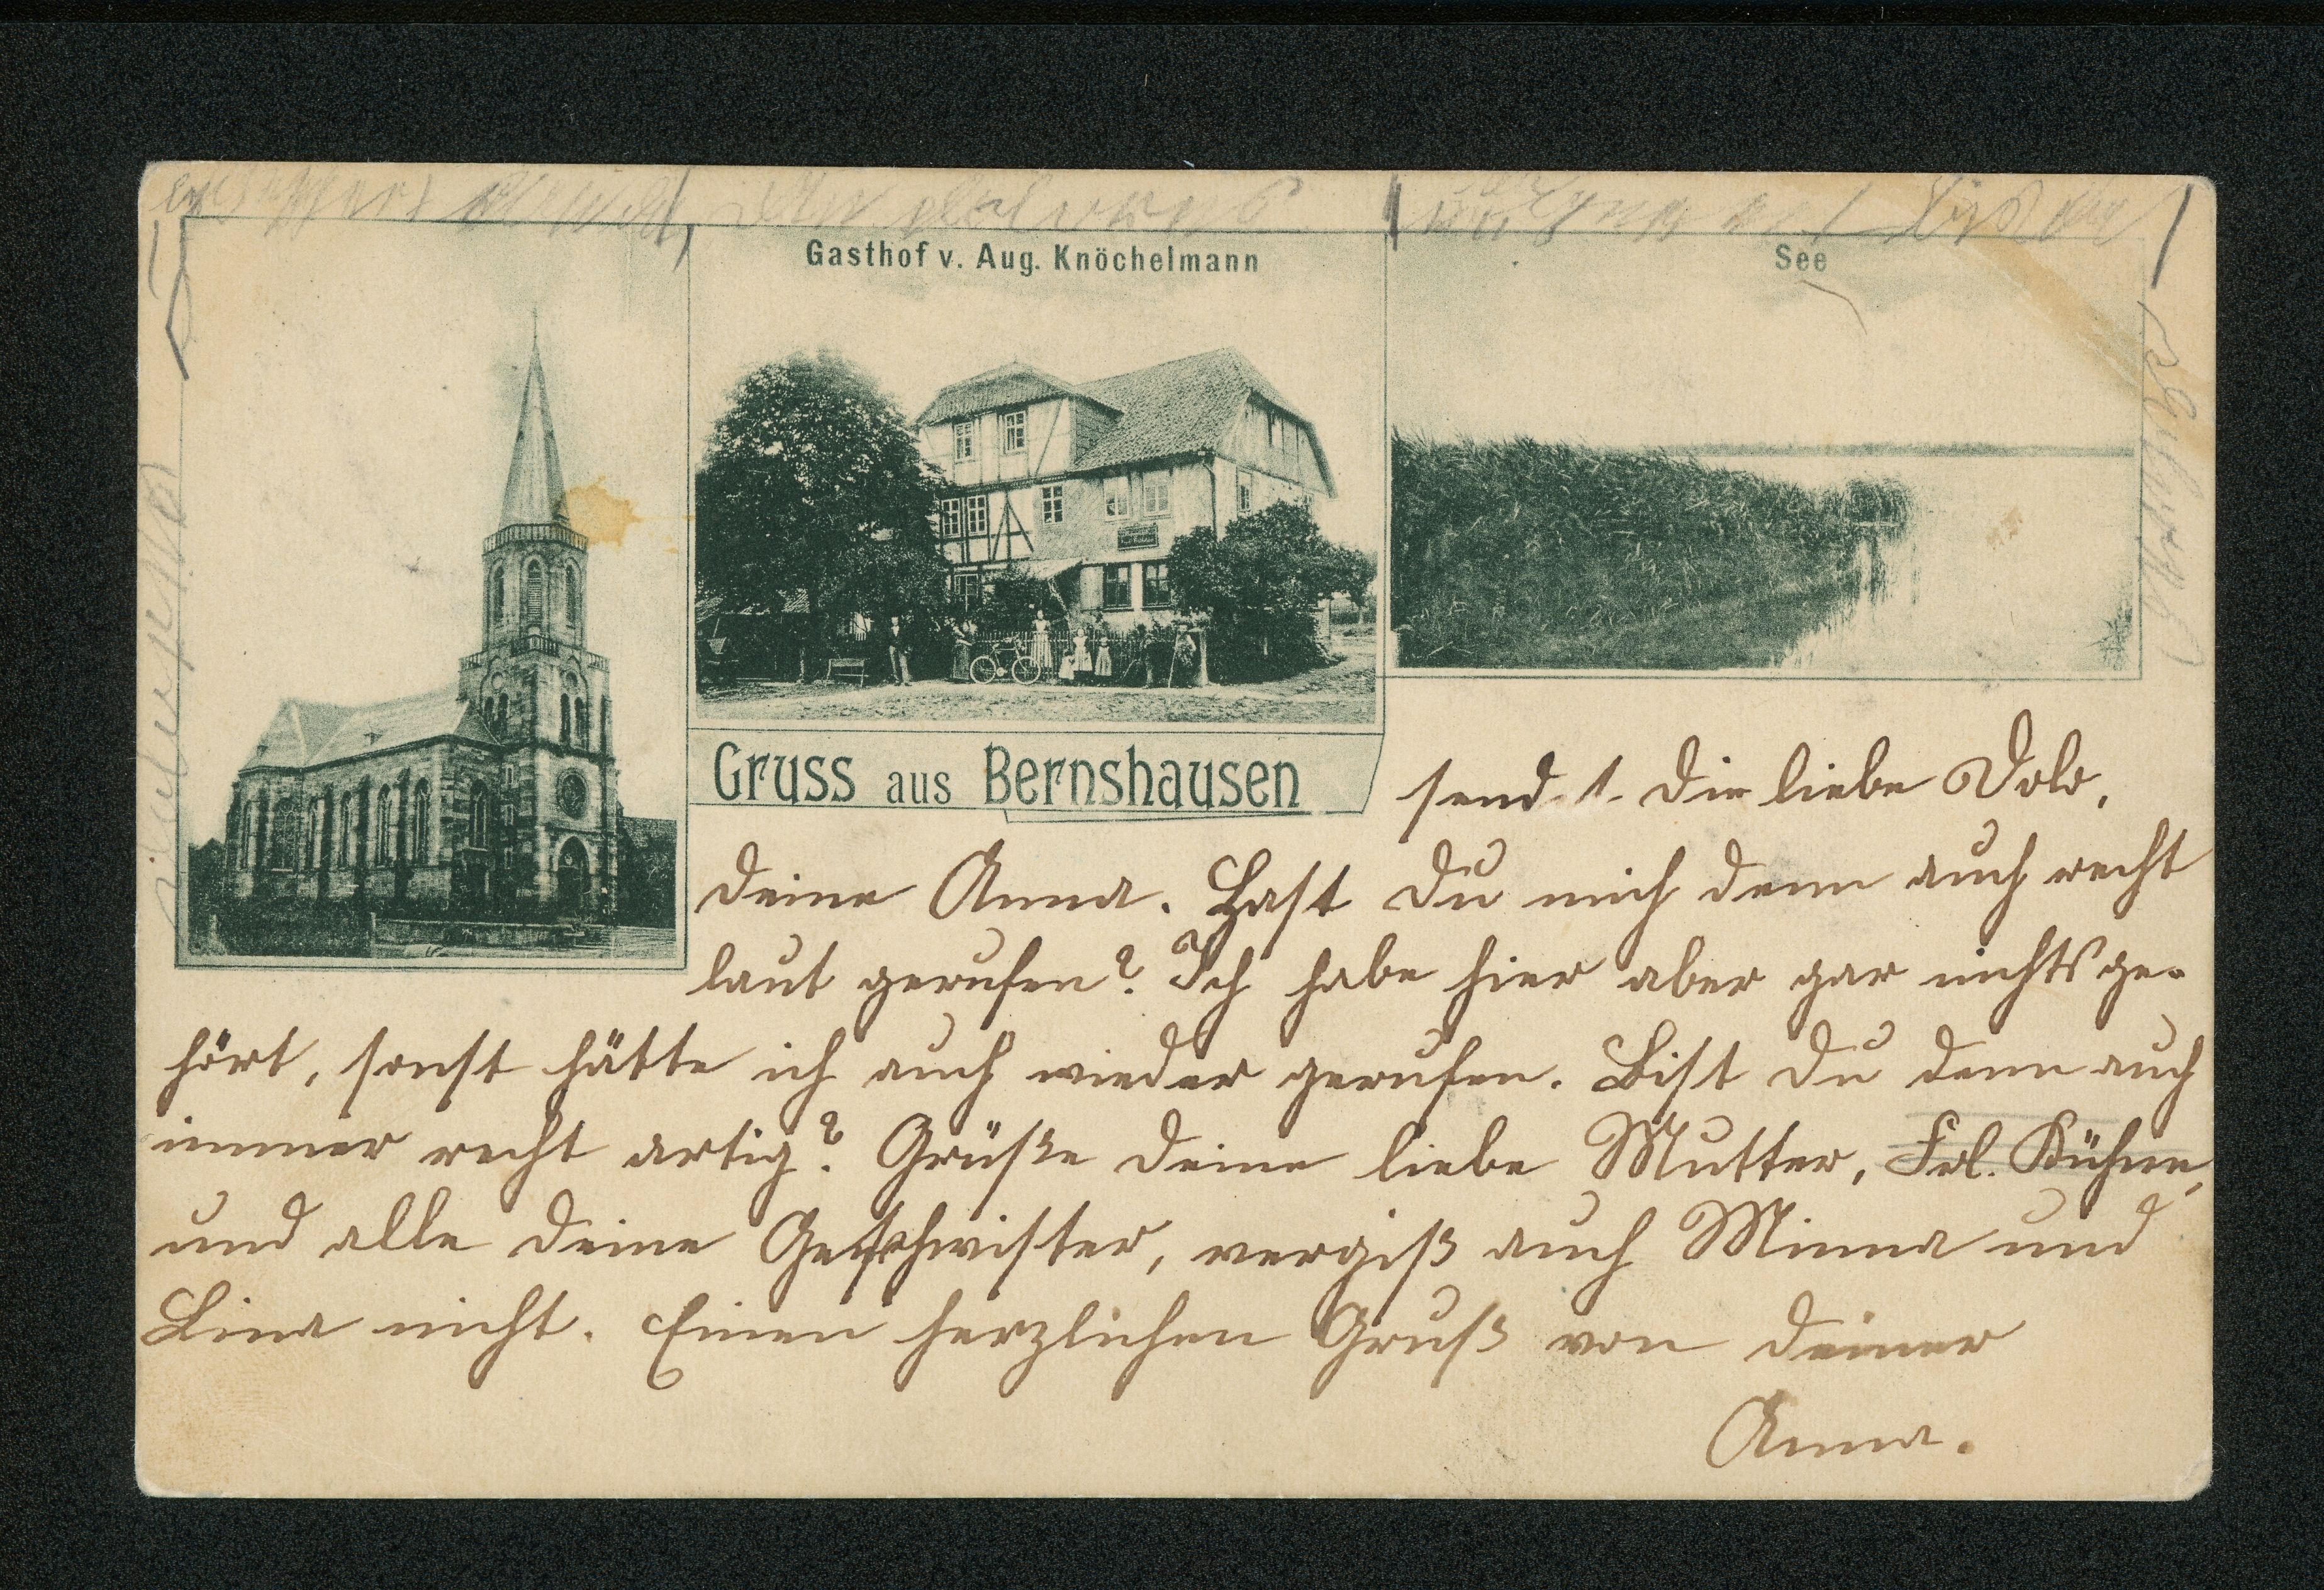 Gasthof v. Aug. Knöchelmann
See
Gruss aus Bernshausen
sendet Dir liebe Dolo,
Deine Anna. Hast Du mich denn auch recht
laut gerufen? Ich habe hier aber gar nichts ge-
hört, sonst hätte ich auch wieder gerufen. Bist Du denn auch
immer recht artig? Grüße Deine liebe Mutter, Frl. Kühne,
und alle Deine Geschwister, vergiß auch Minna und
Lina nicht. Einen herzlichen Gruß von Deiner
Anna.